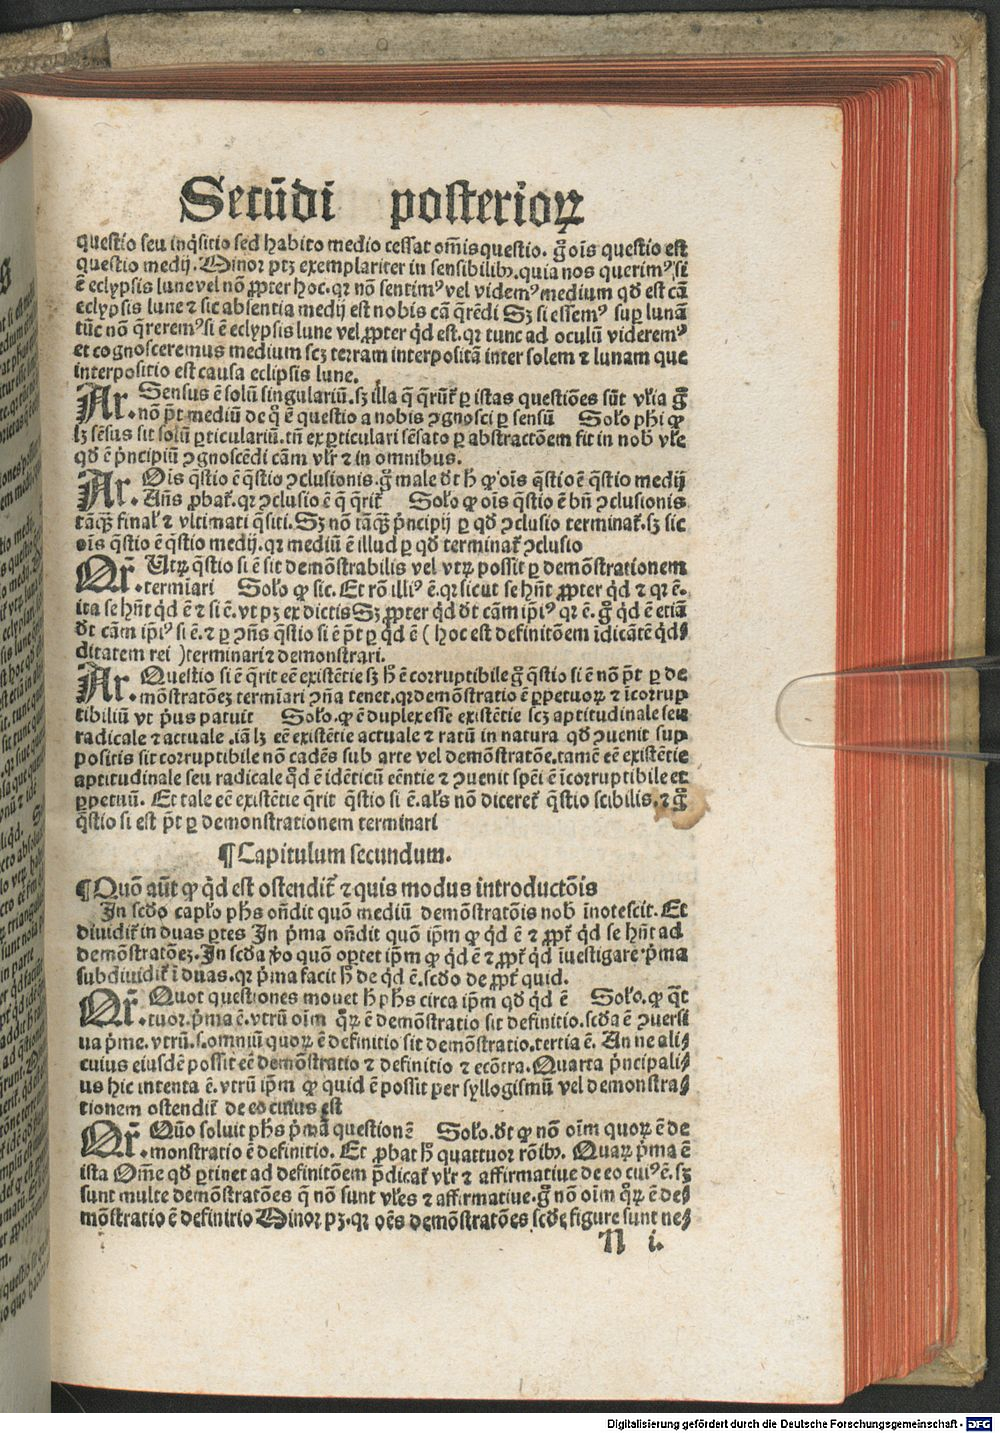 Secūdi posterioꝝ
questio seu inq̇sitio sed habito medio cessat om̄is questio. g̊ oīs questio est
questio medij. Minor ptꝫ exemplariter in sensibilibꝰ. quia nos querimꝰ, si
ē eclypsis lune vel nō ꝓpter hoc. qꝛ nō sentimꝰ vel videmꝰ medium qd̄ est cā
eclypsis lune ⁊ sic absentia medij est nobis cā q̄rēdi Sꝫ si essemꝰ supꝛ lunā
tūc nō q̄reremꝰ si ē eclypsis lune vel ꝓpter qd̄ est. qꝛ tunc ad oculū videremꝰ
et cognosceremus medium scꝫ terram interpositā inter solem ⁊ lunam que
interpositio est causa eclipsis lune.
Ar. Sensus ē solū singulariū. sꝫ illa q̄ q̄rūt̄ ꝑ istas questiōes sūt vl̓ia g̊
nō pt̄ mediū de q̊ ē questio a nobis ꝯgnosci ꝑ sensū Solo̓ phi ꝙ
lꝫ sēsus sit solū ꝑticulariū. tn̄ ex ꝑticulari sēsato ꝑ abstractōem fit in nob̓ vl̓e
qd̄ ē pn̓cipiū ꝯgnoscēdi cām vl̓r ⁊ in omnibus.
Ar. Oīs q̄stio ē q̄stio ꝯclusionis. g̊ male dt̄ h̓ ꝙ oīs q̄stio ē q̄stio medij
Ans̄ ꝓbat̄. qꝛ ꝯclusio ē q̄ q̄rit̄ Solo̓ ꝙ oīs q̄stio ē bn̄ ꝯclusionis
tāq̄ꝫ final̓ ⁊ vltimati q̄siti. Sꝫ nō tāq̄ꝫ pn̓cipij ꝑ qd̄ ꝯclusio terminat̄. sꝫ sic
oīs q̄stio ē q̄stio medij. qꝛ mediū ē illud ꝑ qd̄ terminat̄ ꝯclusio
Qr̄. Utrꝫ q̄stio si ē sit demōstrabilis vel vtrꝫ possit ꝑ demōstrationem
terminari Solo̓ ꝙ sic. Et rō illiꝰ ē. qꝛ sicut se hn̄t ꝓpter qd̄ ⁊ qꝛ ē.
ita se hn̄t qd̄ ē ⁊ si ē. vt pꝫ ex dictis Sꝫ ꝓpter qd̄ dt̄ cām ip̄iꝰ qꝛ ē. g̊ qd̄ ē etiā
dt̄ cām ip̄iꝰ si ē. ⁊ ꝑ ꝯn̄s q̄stio si ē pt̄ ꝑ qd̄ ē ( hoc est definitōem īdicātē qd̄⸗
ditatem rei ) terminari ⁊ demonstrari.
Ar. Questio si ē q̄rit eē existētie sꝫ h̓ ē corruptibile g̊ q̄stio si ē nō pt̄ ꝑ de
mōstratōeꝫ termīari ꝯn̄a tenet. qꝛ demōstratio ē ꝑpetuoꝝ ⁊ īcorrup⸗
tibiliū vt pꝰus patuit Solo̓. ꝙ ē duplex esse existētie scꝫ aptitudinale seu
radicale ⁊ actuale. iā lꝫ eē existētie actuale ⁊ ratū in natura qd̄ ꝯuenit sup
positis sit corruptibile nō cadēs sub arte vel demōstratōe. tamē eē existētie
aptitudinale seu radicale q̊d ē idēticū eēntie ⁊ ꝯuenit spēi ē īcorruptibile et
ꝑpetuū. Et tale eē existētie q̄rit q̄stio si ē. al̓s nō diceret̄ q̄stio scibilis. ⁊ g̊
q̄stio si est pt̄ ꝑ demonstrationem terminari
¶ Capitulum secundum.
¶ Quō aūt ꝙ qd̄ est ostendit̄ ⁊ quis modus introductōis
In scd̓o caplo̓ phs̄ on̄dit quō mediū demōstratōis nob̓ īnotescit. Et
diuidit̄ in duas ꝑtes In pm̓a on̄dit quō ip̄m ꝙ qd̄ ē ⁊ ꝓpt̄ qd̄ se hn̄t ad
demōstratōeꝫ. In scd̓a v̓o quō oꝑtet ip̄m ꝙ qd̄ ē ⁊ ꝓpt̄ qd̄ īuestigare pm̓a
subdiuidit̄ ī duas. qꝛ pm̓a facit h̓ de qd̄ ē. scd̓o de ꝓpt̄ quid.
Qr̄. Quot questiones mouet h̓ phs̄ circa ip̄m qd̄ qd̄ ē Solo̓. ꝙ q̄t
tuor. pm̓a ē. vtrū oīm q̊ꝝ ē demōstratio sit definitio. scd̓a ē ꝯuersi
ua pm̓e. vtrū. s. omniū quoꝝ ē definitio sit demōstratio. tertia ē. An ne ali⸗
cuius eiusdē possit eē demōstratio ⁊ definitio ⁊ ecōtra. Quarta pn̓cipali⸗
us hic intenta ē. vtrū ip̄m ꝙ quid ē possit per syllogismū vel demonstra⸗
tionem ostendit̄ de eo cuius est
Qr̄. Quō soluit phs̄ pm̓ā questionē Solo̓. dt̄ ꝙ nō oīm quoꝝ ē de
monstratio ē definitio. Et ꝓbat h̓ quattuor rōibꝰ. Quaꝝ pm̓a ē
ista Om̄e qd̄ ꝑtinet ad definitōem pd̄icat̄ vl̓r ⁊ affirmatiue de eo cuiꝰ ē. sꝫ
sunt multe demōstratōes q̄ nō sunt vl̓es ⁊ affirmatiue. g̊ nō oīm q̊ꝝ ē de⸗
mōstratio ē definitio Minor pꝫ. qꝛ oēs demōstratōes scd̓e figure sunt ne⸗
N i.
Digitalisierung gefördert durch die Deutsche Forschungsgemeinschaft - DFG